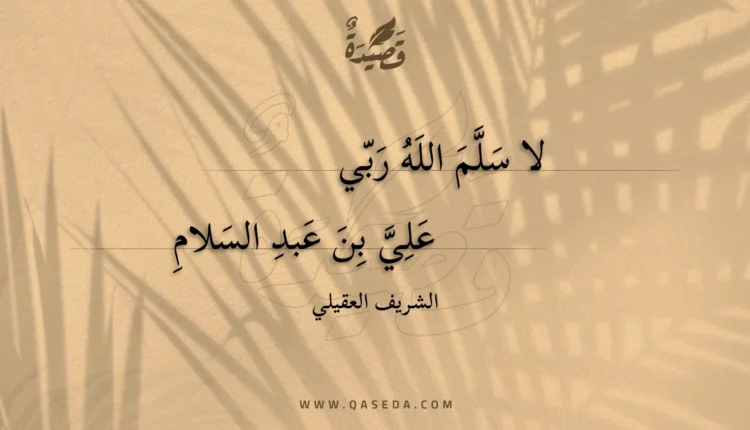 قَصِيدَةٌ
لا سَلَّمَ اللَهُ رَبّي
عَلِيَّ بِنَ عَبدِ السَلامِ
الشريف العقيلي
WWW.QASEDA.COM